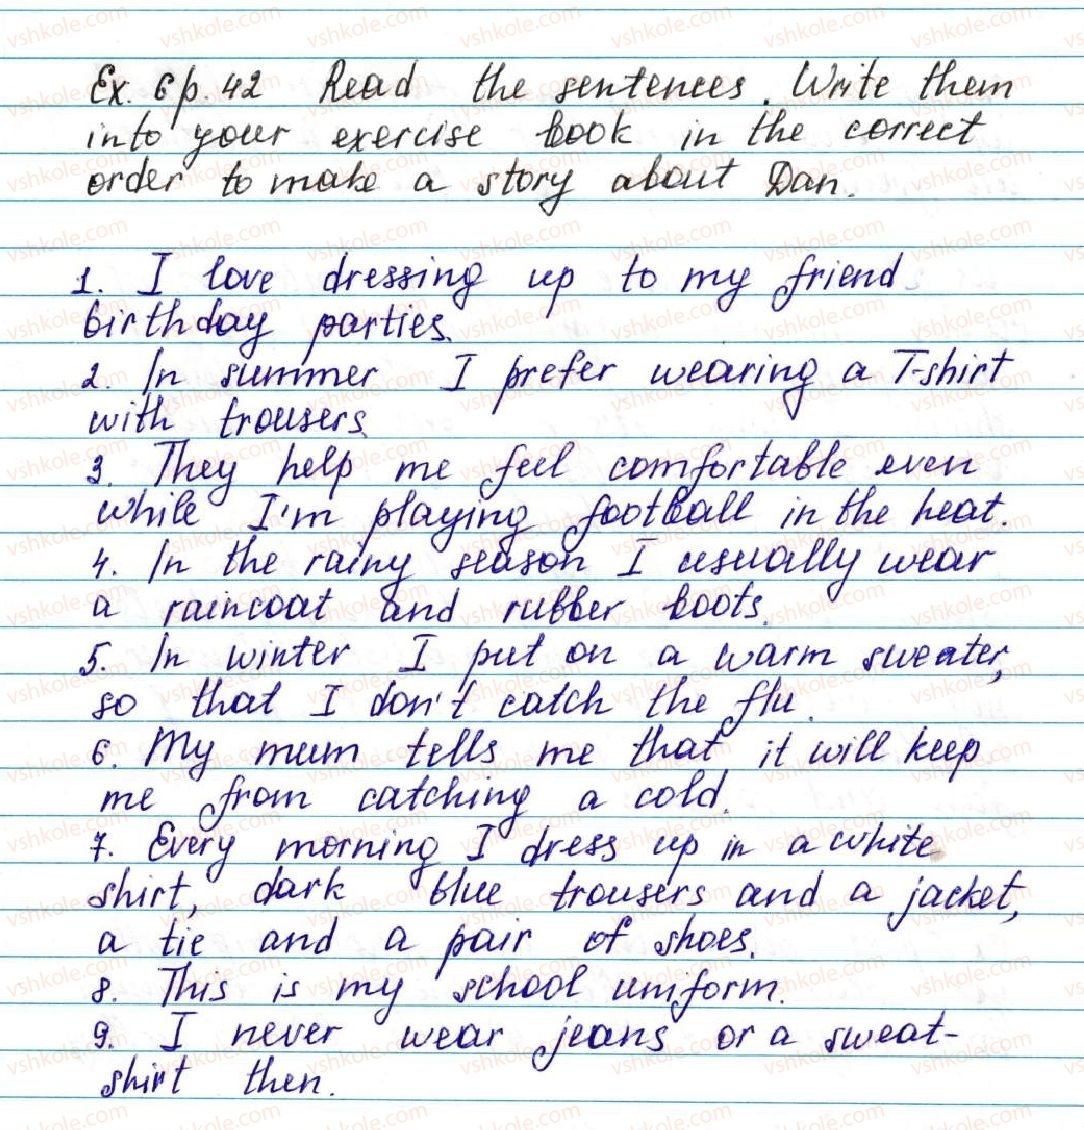 Ex. 6 p. 42 Read the sentences. Write them
into your exercise book in the correct
order to make a story about Dan.
1. I love dressing up to my friend
birthday parties.
2. In summer I prefer wearing a T-shirt
with trousers.
3. They help me feel comfortable even
while I'm playing football in the heat.
4. In the rainy season I usually wear
a raincoat and rubber boots.
5. In winter I put on a warm sweater,
so that I don't catch the flu.
6. My mum tells me that it will keep
me from catching a cold.
7. Every morning I dress up in a white
shirt, dark blue trousers and a jacket,
a tie and a pair of shoes.
8. This is my school uniform.
9. I never wear jeans or a sweat-
shirt then.
vshkole.com